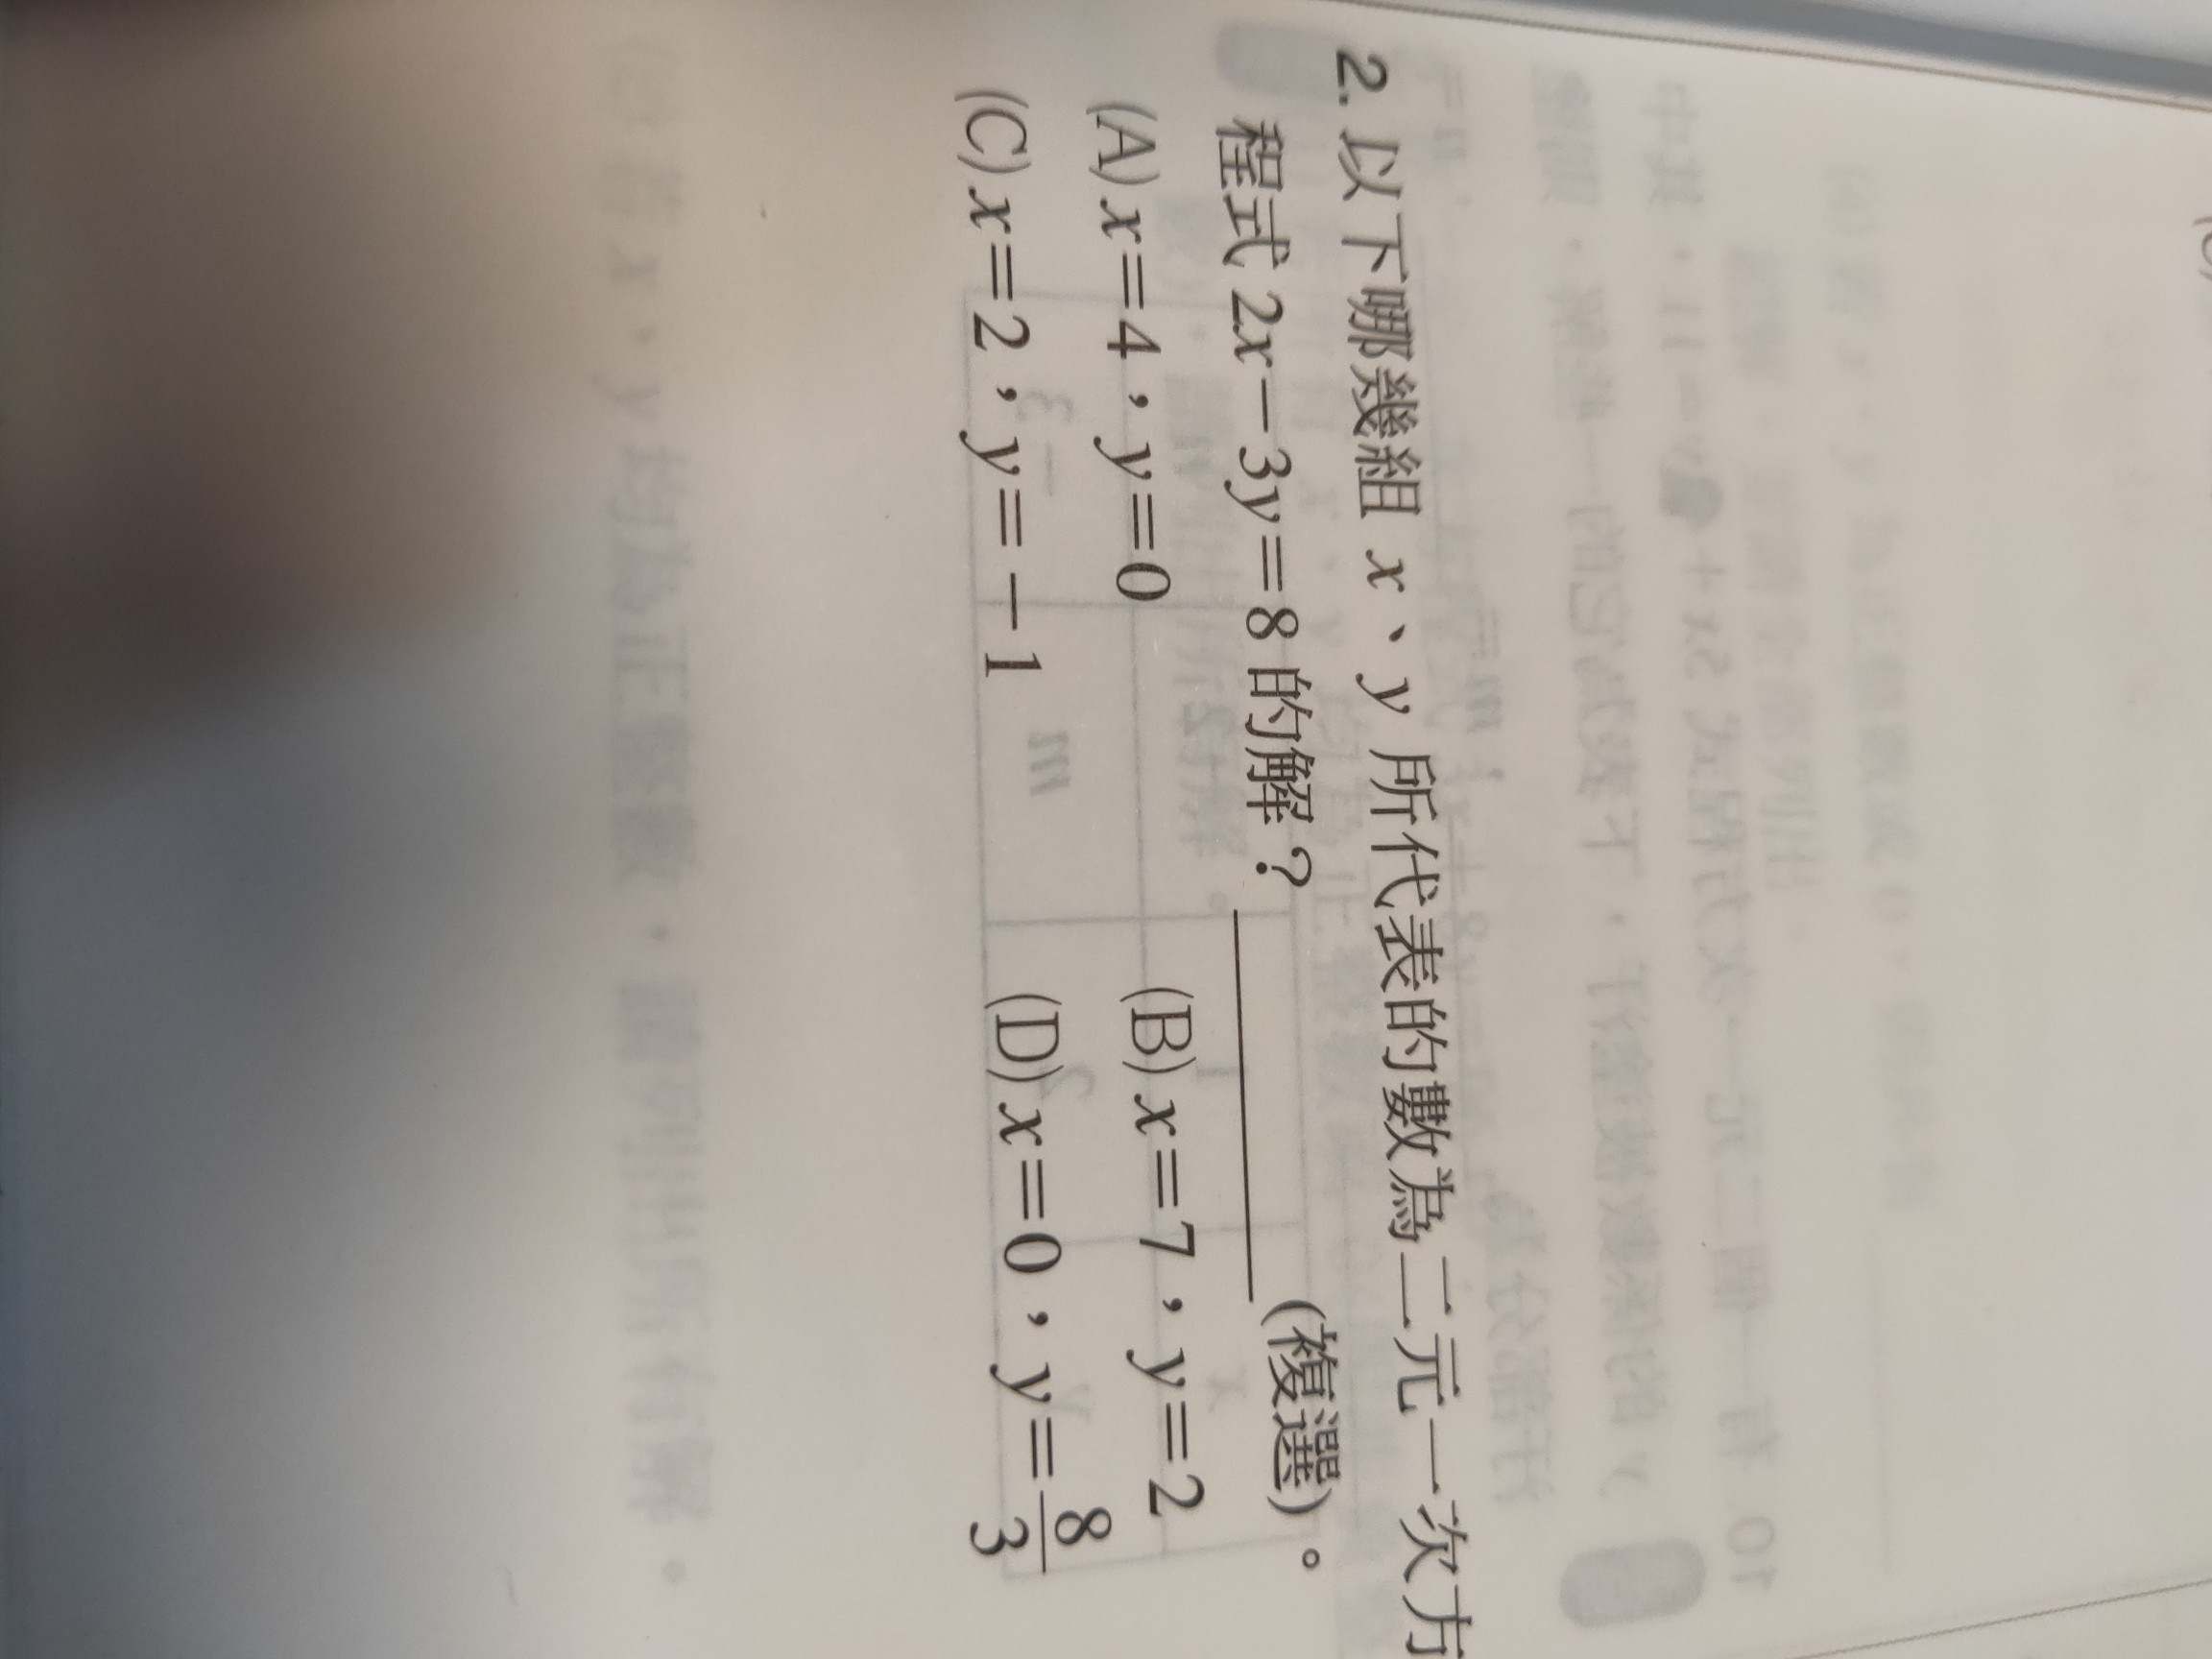 2. 以下哪幾組 x、y 所代表的數為二元一次方
程式 2x－3y＝8 的解？________(複選)。
(A) x＝4，y＝0 (B) x＝7，y＝2
(C) x＝2，y＝－1 (D) x＝0，y＝8/3